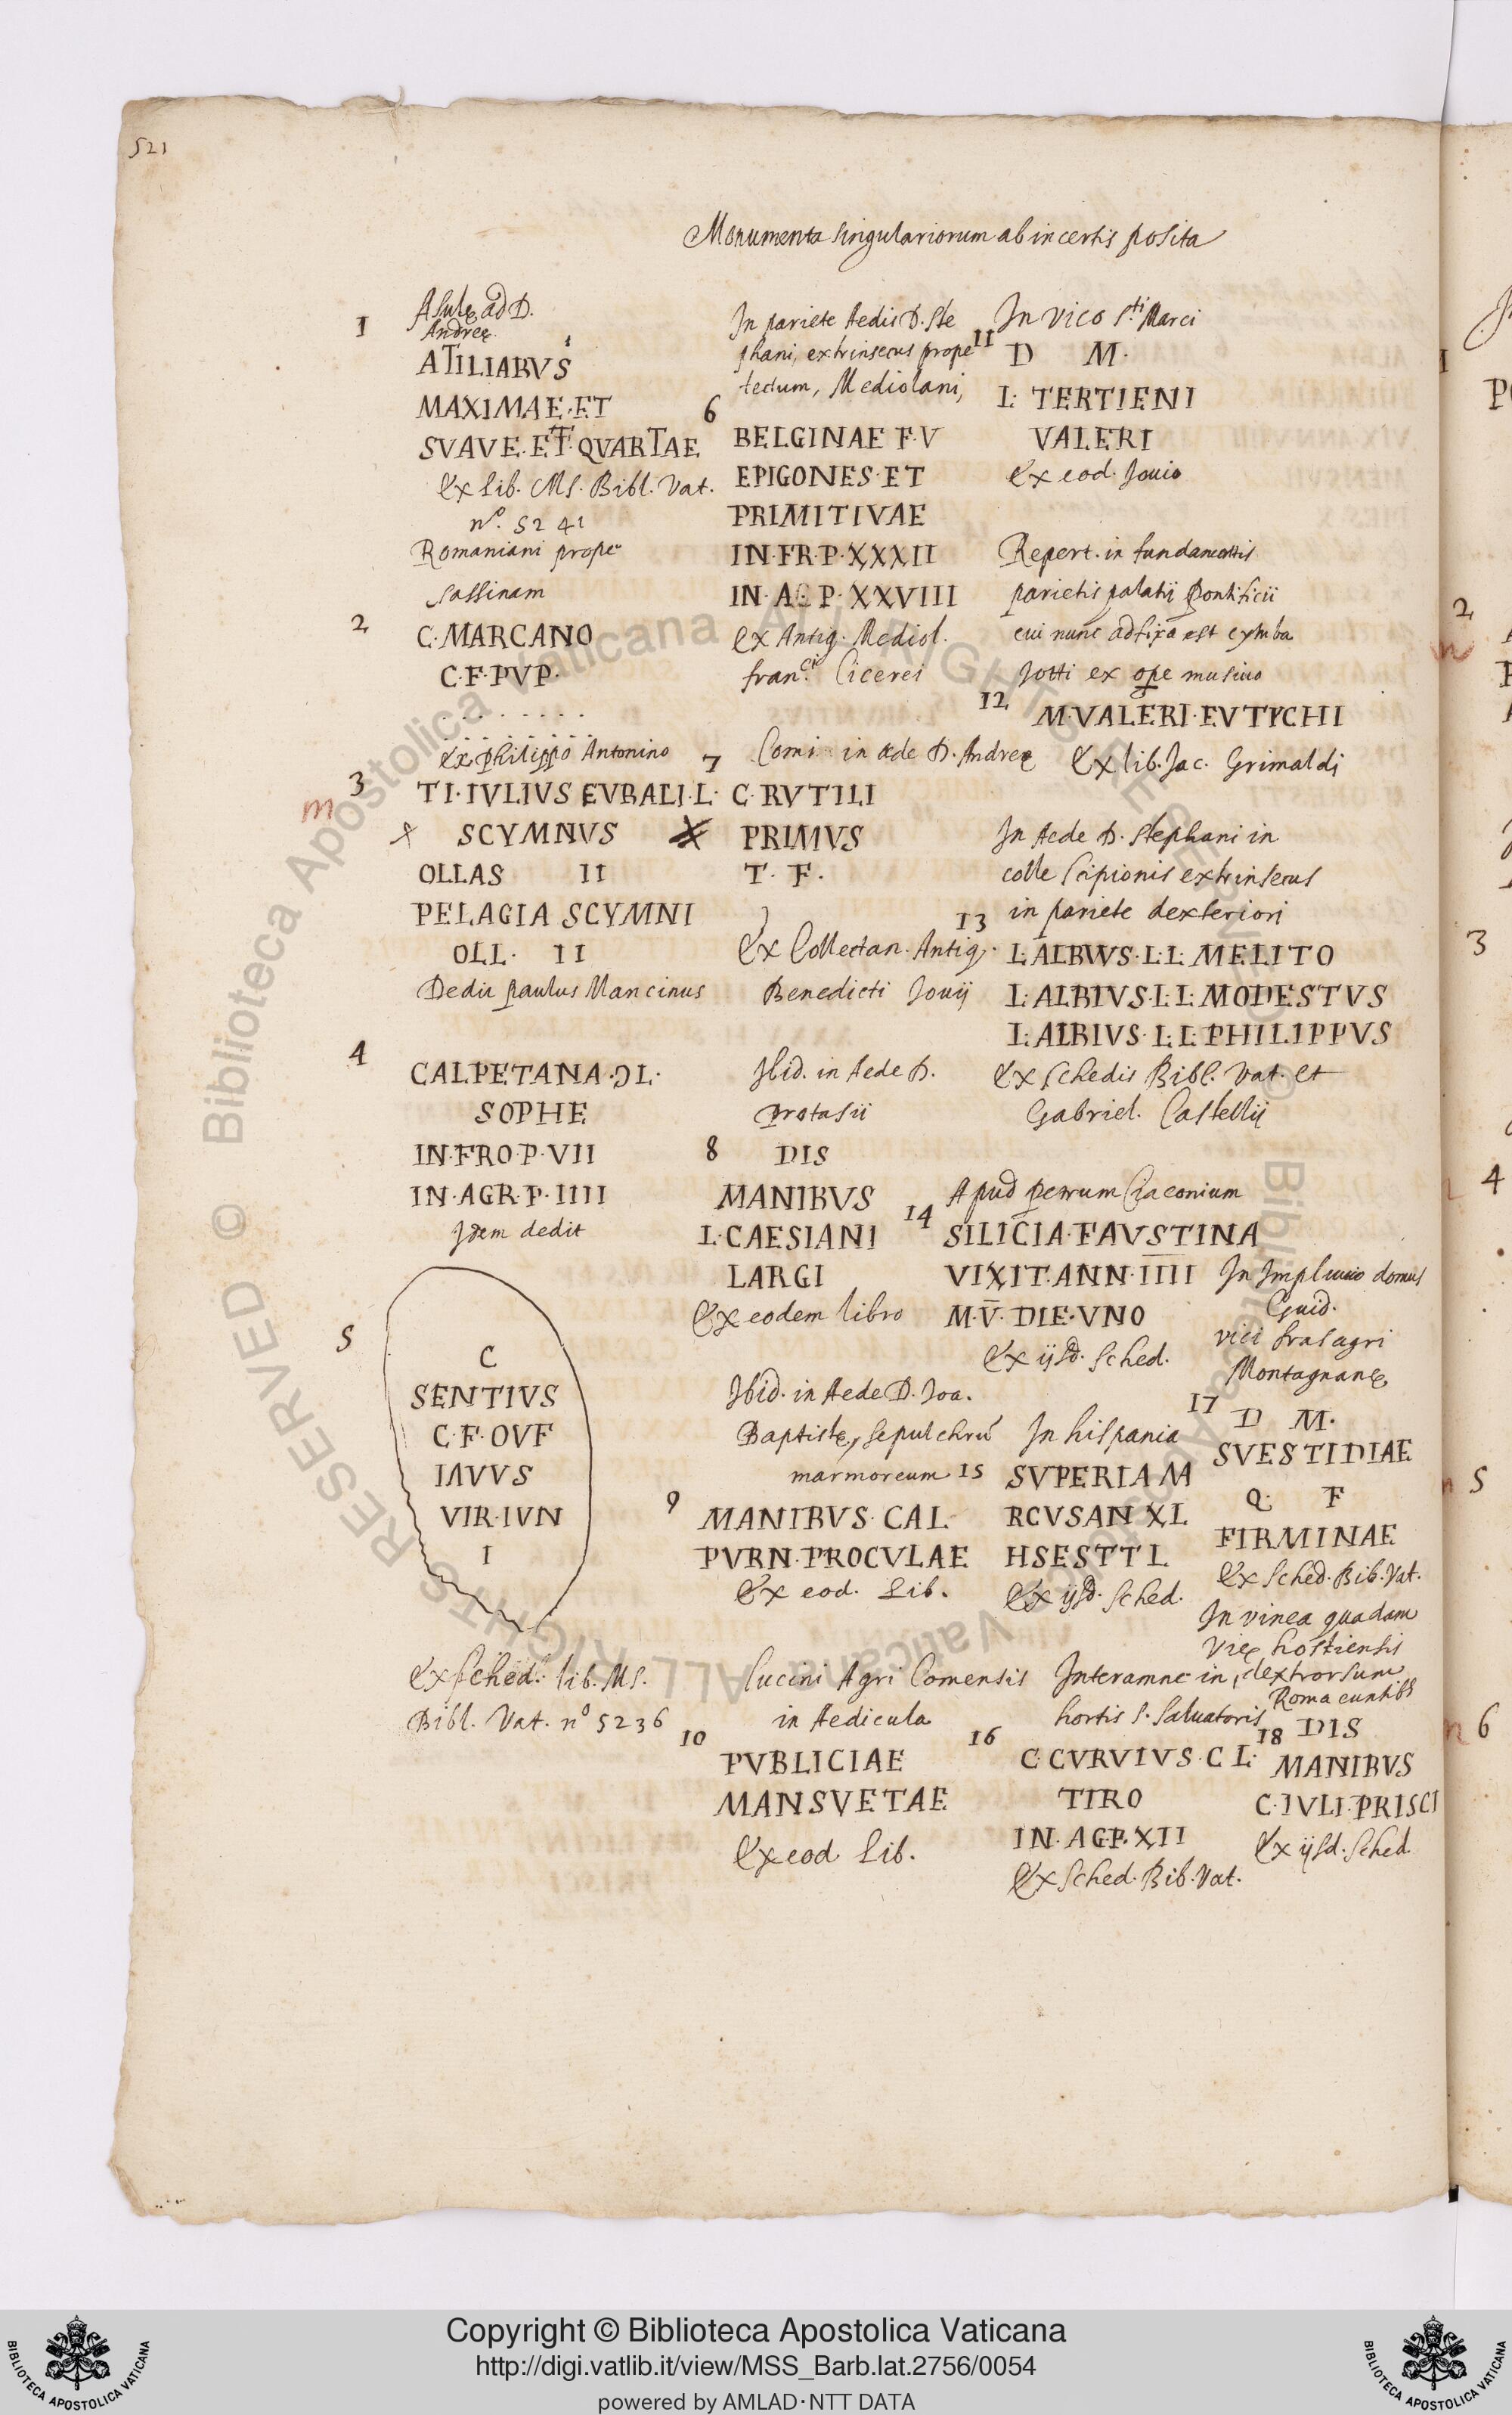 521
Monumenta singulariorum ab incertis posita
1
Asulę ad D.
Andreę
ATILIABVS
MAXIMAE·ET
SVAVE·ET·QVARTAE
Ex Lib. MS. Bibl. Vat.
n.º 5241
Romaniani prope
Sassinam
2
C·MARCANO
C·F·PVP·
. . . . . . . .
. . . . . . . .
Ex Philippo Antonino
m
3
TI·IVLIVS EVBALI·L·
SCYMNVS
OLLAS II
PELAGIA SCYMNI
OLL· II
Dedit Paulus Mancinus
4
CALPETANA·ƆL·
SOPHE
IN·FRO·P·VII
IN·AGR·P·IIII
Idem dedit
5
C
SENTIVS
C·F·OVF
IΛVVS
VIR·IVN
I
Ex Sched. lib. MS.
Bibl. Vat. nº 5236
In pariete Aedis D. Ste
phani, extrinsecus prope
tectum, Mediolani,
6
BELGINAE F·V
EPIGONES·ET
PRIMITIVAE
IN·FR·P·XXXII
IN·AG·P·XXVIII
Ex Antiq. Mediol.
Fran.ci Cicerei
7
Comi in æde D. Andreę
C·RVTILI
PRIMVS
T· F·
Ex Collectan. Antiq.
Benedicti Iouij
Ibid. in Aede D.
Protasii
8
DIS
MANIBVS
L·CAESIANI
LARGI
Ex eodem libro
Ibid. in Aede D. Joa.
Baptistę, sepulchrū
marmoreum
9
MANIBVS·CAL
PVRN·PROCVLAE
Ex eod. Lib.
Lucini Agri Comensis
in Aedicula
10
PVBLICIAE
MANSVETAE
Ex eod. Lib.
In vico S.ti Marci
11
D M·
L· TERTIENI
VALERI
Ex eod. Jouio
Repert. in fundamentis
parietis palatij Pontificii
cui nunc adfixa est cymba
Jotti ex ope musiuo
12
M·VALERI·EVTYCHI
Ex lib. Jac. Grimaldi
In Aede D. Stephani in
colle Scipionis extrinsecus
in pariete dexteriori
13
L·ALBIVS·L·L·MELITO
L·ALBIVS·L·L·MODESTVS
L·ALBIVS·L·L·PHILIPPVS
Ex Schedis Bibl. Vat. et
Gabriel. Castellij
Apud Petrum Ciaconium
14
SILICIA·FAVSTINA
VIXIT·ANN·IIII
M·V· DIE·VNO
Ex ijsd. Sched.
In Hispania
15
SVPERIA M
RCVSAN XL
HSESTTL
Ex ijsd. Sched.
Interamne in
hortis S. Saluatoris
16
C·CVRVIVS·C L·
TIRO
IN·AGP·XII
Ex Sched. Bib. Vat.
In Impluuio domus
Guid.
vici
Montagnanę
17
D M·
SVESTIDIAE
Q· F
FIRMINAE
Ex Sched. Bib. Vat.
In vinea quadam
Vię hostiensis
dextrorsum
Roma euntibs
18
DIS
MANIBVS
C·IVLI·PRISCI
Ex ijsd. Sched
1
2
3
4
5
6
Biblioteca Apostolica Vaticana ALL RIGHTS RESERVED ©
Copyright © Biblioteca Apostolica Vaticana
http://digi.vatlib.it/view/MSS_Barb.lat.2756/0054
powered by AMLAD·NTT DATA
BIBLIOTECA APOSTOLICA VATICANA
BIBLIOTECA APOSTOLICA VATICANA